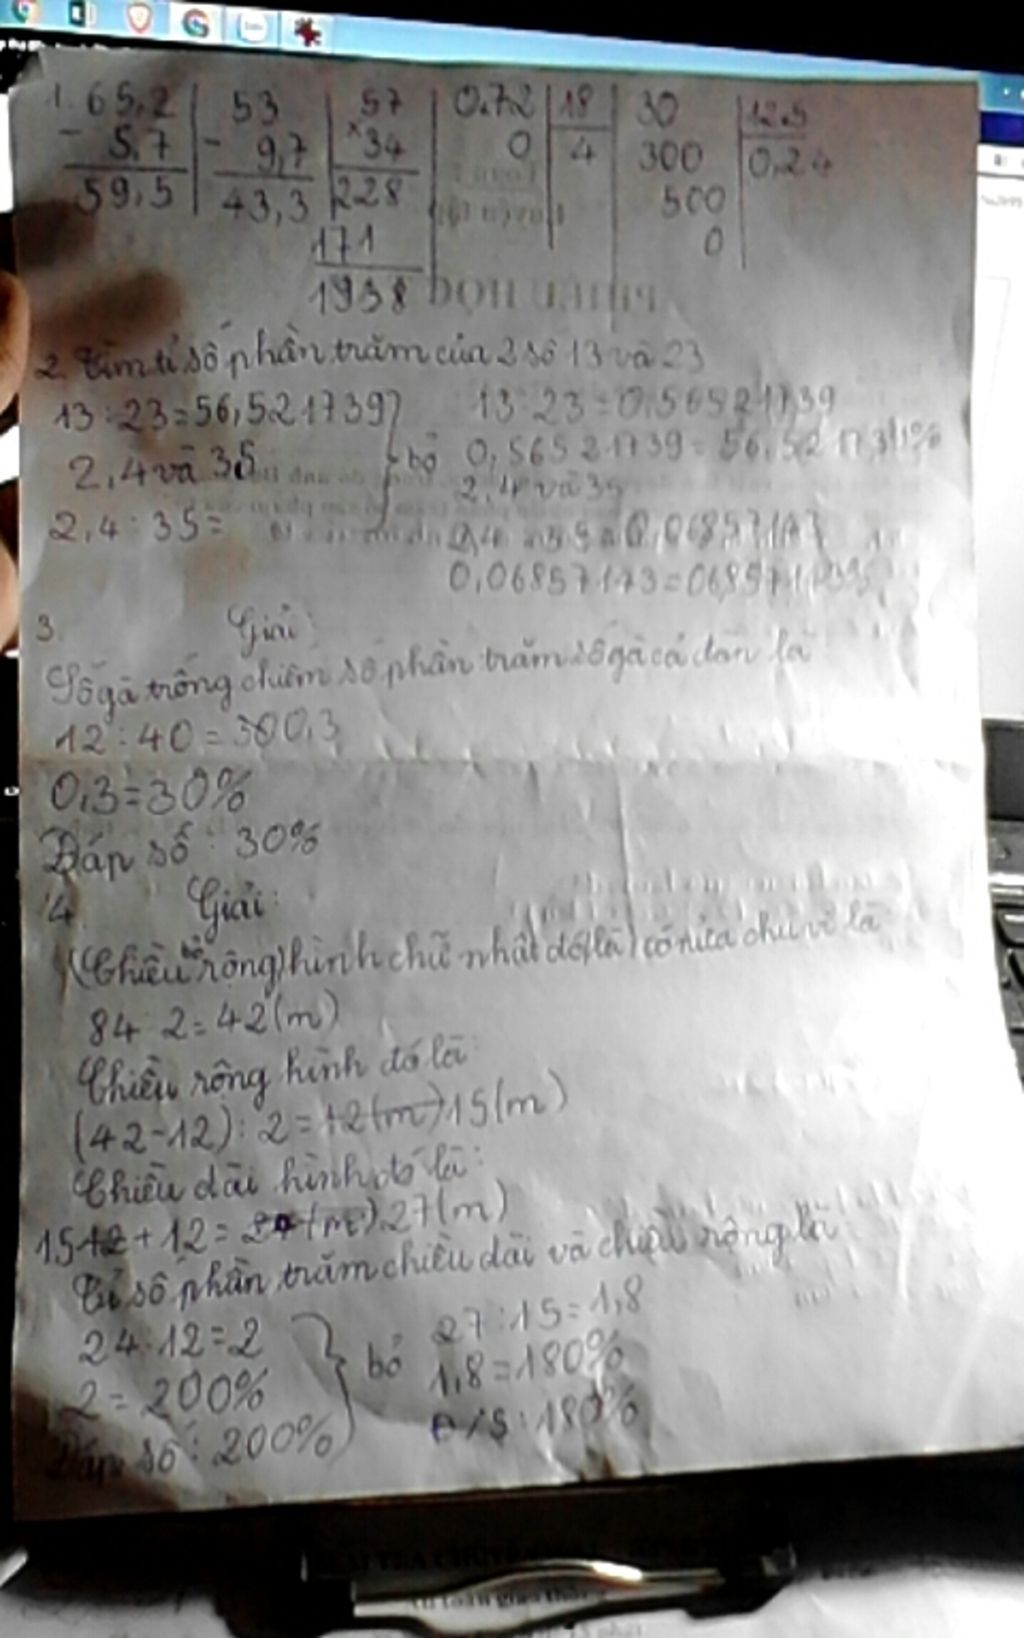 1. 65,2 | 53 | 57 | 0.72 | 18 | 30 | 12.5
- 5,7 | - 9,7 | x 34 | 0 | 4 | 300 | 0,24
59,5 | 43,3 | 228 | 500
171 | 0
1938
2. Tìm tỉ số phần trăm của 2 số 13 và 23
13 : 23 = 56,5217397 13 : 23 = 0,56521739
2,4 và 35 bỏ 0,56521739 =
2,4 và 35
2,4 : 35 =
3. Giải:
Số gà trống chiếm số phần trăm số gà cả đàn là
12 : 40 = 0,3
0,3 = 30%
Đáp số : 30%
4 Giải:
(Chiều rộng) hình chữ nhật đó (là) có nửa chu vi là
84 : 2 = 42 (m)
Chiều rộng hình đó là
(42-12) : 2 = 12 (m) 15 (m)
Chiều dài hình đó là:
15 12 + 12 = 24 (m) 27 (m)
Tỉ số phần trăm chiều dài và chiều rộng là
24 : 12 = 2 27 : 15 = 1,8
2 = 200% bỏ 1,8 = 180%
Đáp số : 200% Đ/S : 180%